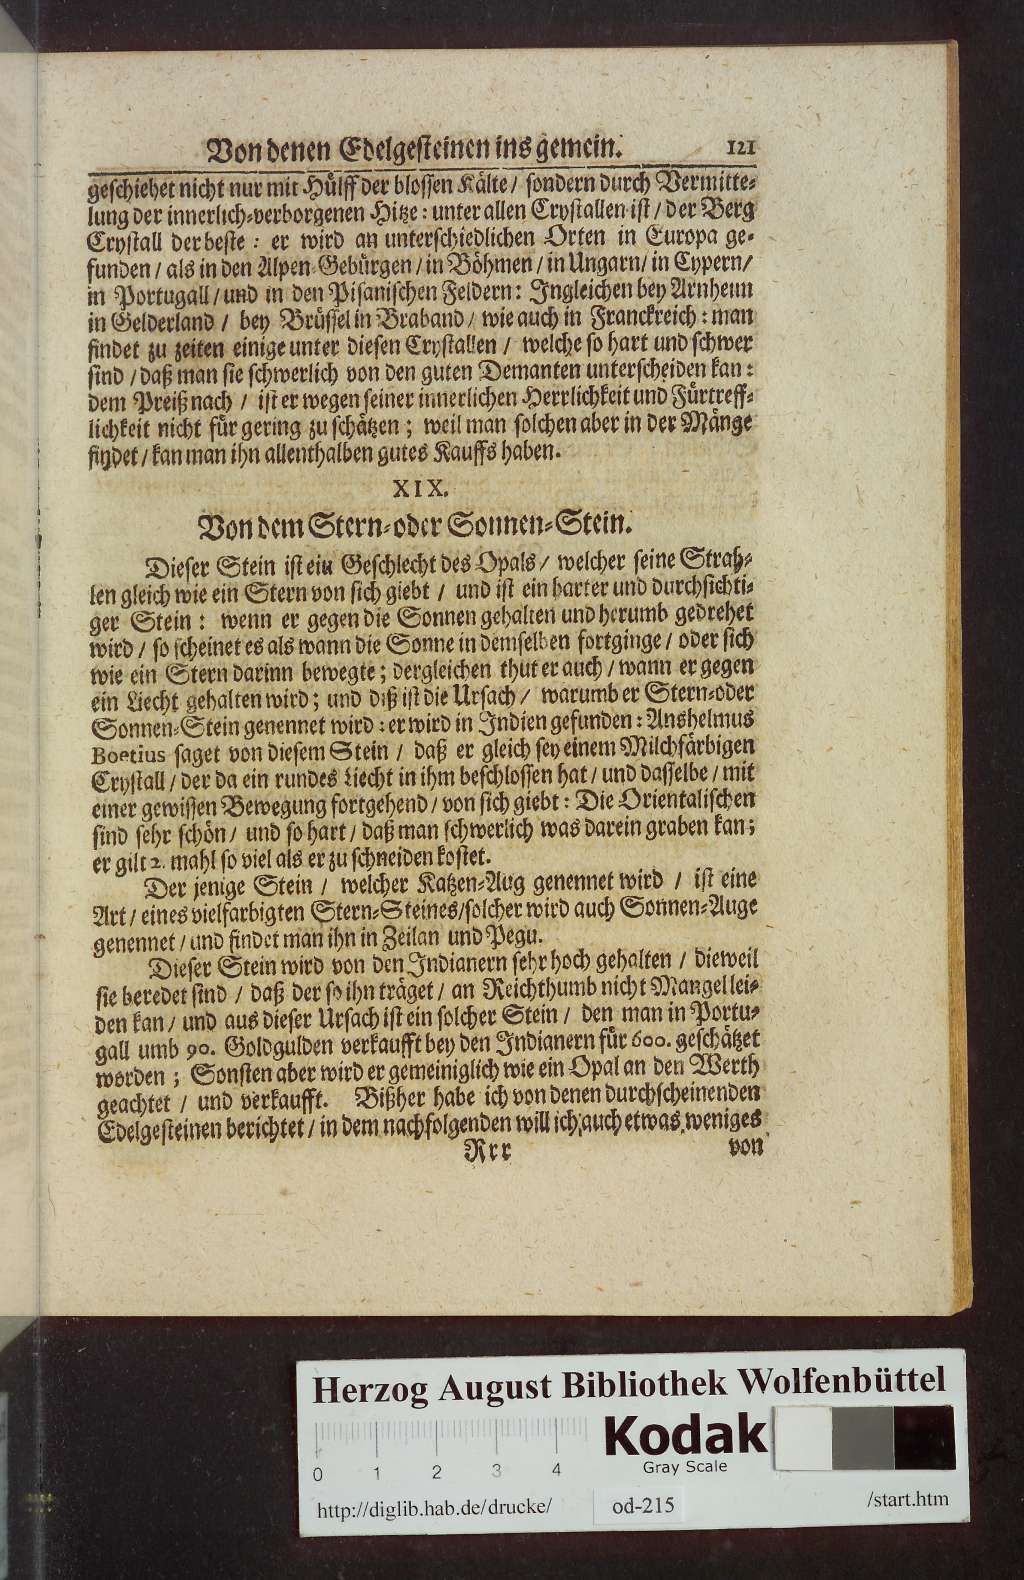 Von denen Edelgesteinen ins gemein. 121
geschiehet nicht nur mit Hülff der blossen Kälte / sondern durch Vermitte-
lung der innerlich-verborgenen Hitze : unter allen Crystallen ist / der Berg
Crystall der beste : er wird an unterschiedlichen Orten in Europa ge-
funden / als in den Alpen Gebürgen / in Böhmen / in Ungarn / in Cypern /
in Portugall / und in den Pisanischen Feldern : Ingleichen bey Arnheim
in Gelderland / bey Brüssel in Braband / wie auch in Franckreich : man
findet zu zeiten einige unter diesen Crystallen / welche so hart und schwer
sind / daß man sie schwerlich von den guten Demanten unterscheiden kan :
dem Preiß nach / ist er wegen seiner innerlichen Herrlichkeit und Fürtreff-
lichkeit nicht für gering zu schätzen ; weil man solchen aber in der Mänge
findet / kan man ihn allenthalben gutes Kauffs haben.
XIX.
Von dem Stern- oder Sonnen-Stein.
Dieser Stein ist ein Geschlecht des Opals / welcher seine Strah-
len gleich wie ein Stern von sich giebt / und ist ein harter und durchsichti-
ger Stein : wenn er gegen die Sonnen gehalten und herumb gedrehet
wird / so scheinet es als wann die Sonne in demselben fortginge / oder sich
wie ein Stern darinn bewegte ; dergleichen thut er auch / wann er gegen
ein Liecht gehalten wird ; und diß ist die Ursach / warumb er Stern- oder
Sonnen-Stein genennet wird : er wird in Indien gefunden : Anshelmus
Boetius saget von diesem Stein / daß er gleich sey einem Milchfärbigen
Crystall / der da ein rundes Liecht in ihm beschlossen hat / und dasselbe / mit
einer gewissen Bewegung fortgehend / von sich giebt : Die Orientalischen
sind sehr schön / und so hart / daß man schwerlich was darein graben kan ;
er gilt 2. mahl so viel als er zu schneiden kostet.
Der jenige Stein / welcher Katzen-Aug genennet wird / ist eine
Art / eines vielfarbigten Stern-Steines / solcher wird auch Sonnen-Auge
genennet / und findet man ihn in Zeilan und Pegu.
Dieser Stein wird von den Indianern sehr hoch gehalten / dieweil
sie beredet sind / daß der so ihn träget / an Reichthumb nicht Mangel lei-
den kan / und aus dieser Ursach ist ein solcher Stein / den man in Portu-
gall umb 90. Goldgulden verkaufft bey den Indianern für 600. geschätzet
worden ; Sonsten aber wird er gemeiniglich wie ein Opal an den Werth
geachtet / und verkaufft. Bißher habe ich von denen durchscheinenden
Edelgesteinen berichtet / in dem nachfolgenden will ich auch etwas weniges
Rrr von
Herzog August Bibliothek Wolfenbüttel
0 1 2 3 4
Kodak
Gray Scale
http://diglib.hab.de/drucke/ od-215 /start.htm